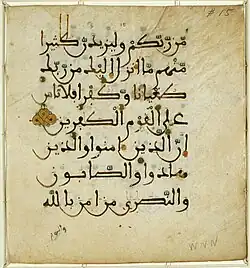 من ربكم وليزيدن كثيرا
منهم ما انزل اليك من ربك
طغيانا وكفرا فلا تاس
على القوم الكفرين
ان الذين امنوا والذين
هادوا والصابون
والنصرى من امن بالله
# 15